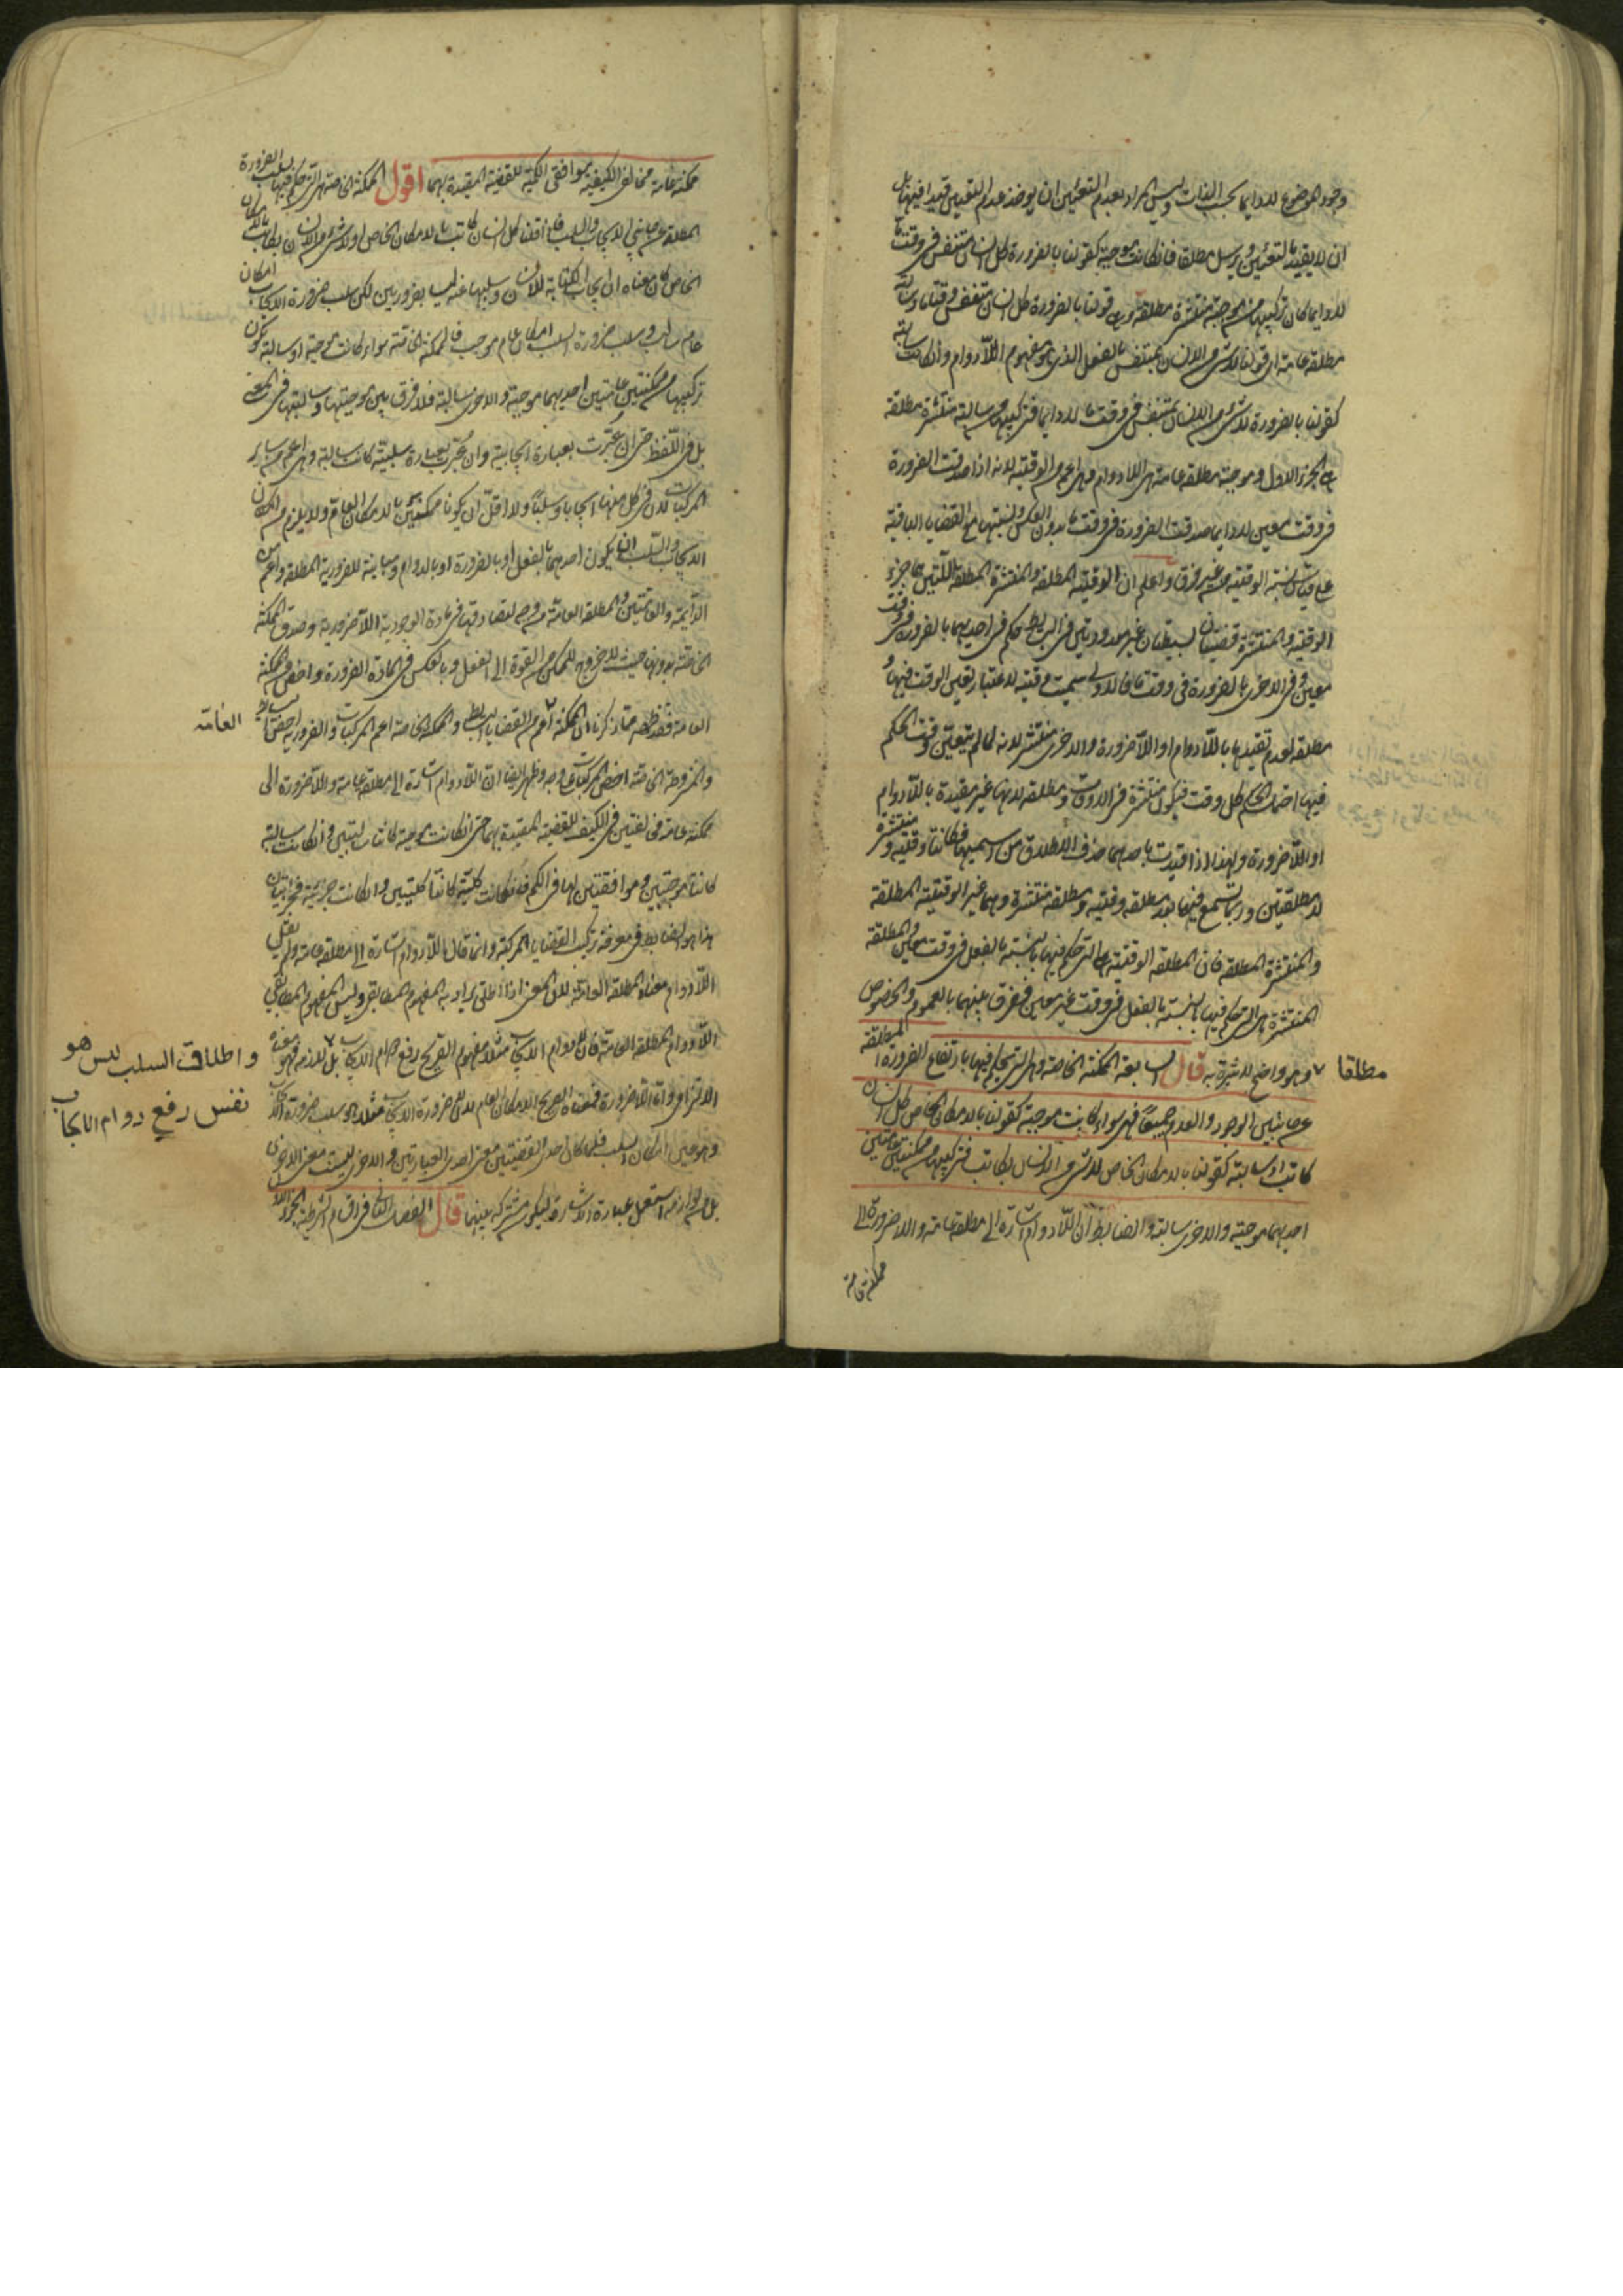 وجود الموضوع لا دايما بحسب الذات وليس المراد بعدم التعيين ان يوخذ عدم التعيين قيدا فيها بل
ان لا يقيد بالتعيين ويرسل مطلقا فان كانت موجبة كقولنا بالضرورة كل انسان متنفس في وقت ما
لا دايما كان تركيبها من موجبة منتشرة مطلقة وهي قولنا بالضرورة كل انسان متنفس وقتا ما وسالبة
مطلقة عامة اي قولنا لا شيء من الانسان بمتنفس بالفعل الذي هو مفهوم اللادوام وان كانت سالبة
كقولنا بالضرورة لا شيء من الانسان بمتنفس في وقت ما لا دايما فتركيبها من سالبة منتشرة مطلقة
هي الجزء الاول وموجبة مطلقة عامة هي اللادوام وهي اعم من الوقتية لانه اذا صدقت الضرورة
في وقت معين لا دايما صدقت الضرورة في وقت ما بدون العكس ونسبتها مع القضايا الباقية
على قياس نسبة الوقتية من غير فرق واعلم ان الوقتية المطلقة والمنتشرة المطلقة اللتين هما جزء
الوقتية والمنتشرة قضيتان بسيطتان غير معدودتين في البسايط حكم في احديهما بالضرورة في وقت
معين وفي الاخرى بالضرورة في وقت ما فالاولى سميت وقتية لاعتبار تعين الوقت فيها و
مطلقة لعدم تقييدها باللادوام او اللاضرورة والاخرى منتشرة لانه لما لم يتعين وقت الحكم
فيها احتمل الحكم كل وقت فيكون منتشرة في الاوقات ومطلقة لانها غير مقيدة باللادوام
او اللاضرورة ولهذا اذا قيدت باحديهما حذف الاطلاق من اسميهما فكانتا وقتية ومنتشرة
لا مطلقتين وربما تسمع فيما بعد مطلقة وقتية ومطلقة منتشرة وهما غير الوقتية المطلقة
والمنتشرة المطلقة فان المطلقة الوقتية هي التي حكم فيها بالنسبة بالفعل في وقت معين والمطلقة
المنتشرة هي التي حكم فيها بالنسبة بالفعل في وقت غير معين ففرق بينهما بالعموم والخصوص
مطلقا
وهو واضح لا سترة به قال السابعة الممكنة الخاصة وهي التي يحكم فيها بارتفاع الضرورة المطلقة
عن جانبي الوجود والعدم جميعا فهي سواء كانت موجبة كقولنا بالامكان الخاص كل انسان
كاتب او سالبة كقولنا بالامكان الخاص لا شيء من الانسان بكاتب فتركيبها من ممكنتين عامتين
احديهما موجبة والاخرى سالبة والضابط ان اللادوام اشارة الى مطلقة عامة واللاضرورة الى
ممكنة عامة
ممكنة عامة مخالفتي الكيفية موافقتي الكمية للقضية المقيدة بهما اقول الممكنة الخاصة هي التي حكم فيها بسلب الضرورة
المطلقة عن جانبي الايجاب والسلب فاذا قلنا كل انسان كاتب بالامكان الخاص او لا شيء من الانسان بكاتب بالامكان
الخاص كان معناه ان ايجاب الكتابة للانسان وسلبها عنه ليسا بضروريين لكن سلب ضرورة الايجاب امكان
عام سالب وسلب ضرورة السلب امكان عام موجب فالممكنة الخاصة سواء كانت موجبة او سالبة يكون
تركيبها من ممكنتين عامتين احديهما موجبة والاخرى سالبة فلا فرق بين موجبتها وسالبتها في المعنى
بل في اللفظ حتى ان عبرت بعبارة ايجابية وان عبرت بعبارة سلبية كانت سالبة وهي اعم من ساير
المركبات لان في كل منها ايجابا وسلبا ولا اقل ان يكونا ممكنتين بالامكان العام ولا يلزم من امكان
الايجاب والسلب ان يكون احدهما بالفعل او بالضرورة او بالدوام ومباينة للضرورية المطلقة واعم من
الدايمة والعامتين والمطلقة العامة من وجه لتصادقها في مادة الوجودية اللاضرورية وصدق الممكنة
الخاصة بدونها حيث لا خروج للممكن من القوة الى الفعل وبالعكس في مادة الضرورة واخص من الممكنة
العامة فقد ظهر مما ذكرنا ان الممكنة اعم من القضايا البسايط والممكنة الخاصة اعم المركبات والضرورية اخص البسايط
العامة
والمشروطة الخاصة اخص المركبات على وجه وظهر ايضا ان اللادوام اشارة الى مطلقة عامة واللاضرورة الى
ممكنة عامة مخالفتين في الكيف للقضية المقيدة بهما حتى ان كانت موجبة كانتا سالبتين وان كانت سالبة
كانتا موجبتين وموافقتين لها في الكم فان كانت كلية كانتا كليتين وان كانت جزئية فجزئيتان
هذا هو الضابط في معرفة تركيب القضايا المركبة وانما قال اللادوام اشارة الى مطلقة عامة ولم يقل
اللادوام معناه المطلقة العامة لان المعنى اذا اطلق يراد به المفهوم المطابقي وليس المفهوم المطابقي
اللادوام المطلقة العامة فان لادوام الايجاب مثلا مفهومه الصريح رفع دوام الايجاب بل لازمه فهو معناه
واطلاق السلب ليس هو
نفس رفع دوام الايجاب
الالتزامي واما اللاضرورة فمعناه الصريح الامكان العام لان لاضرورة الايجاب مثلا هو سلب ضرورة الايجاب
وهو عين امكان السلب فلما كان احدى القضيتين معنى احدى العبارتين والاخرى ليست معنى الاخرى
بل من لوازمه استعمل عبارة الاشارة ليكون مشتركة بينهما قال الفصل الثاني في اقسام الشرطية الجزء الاول